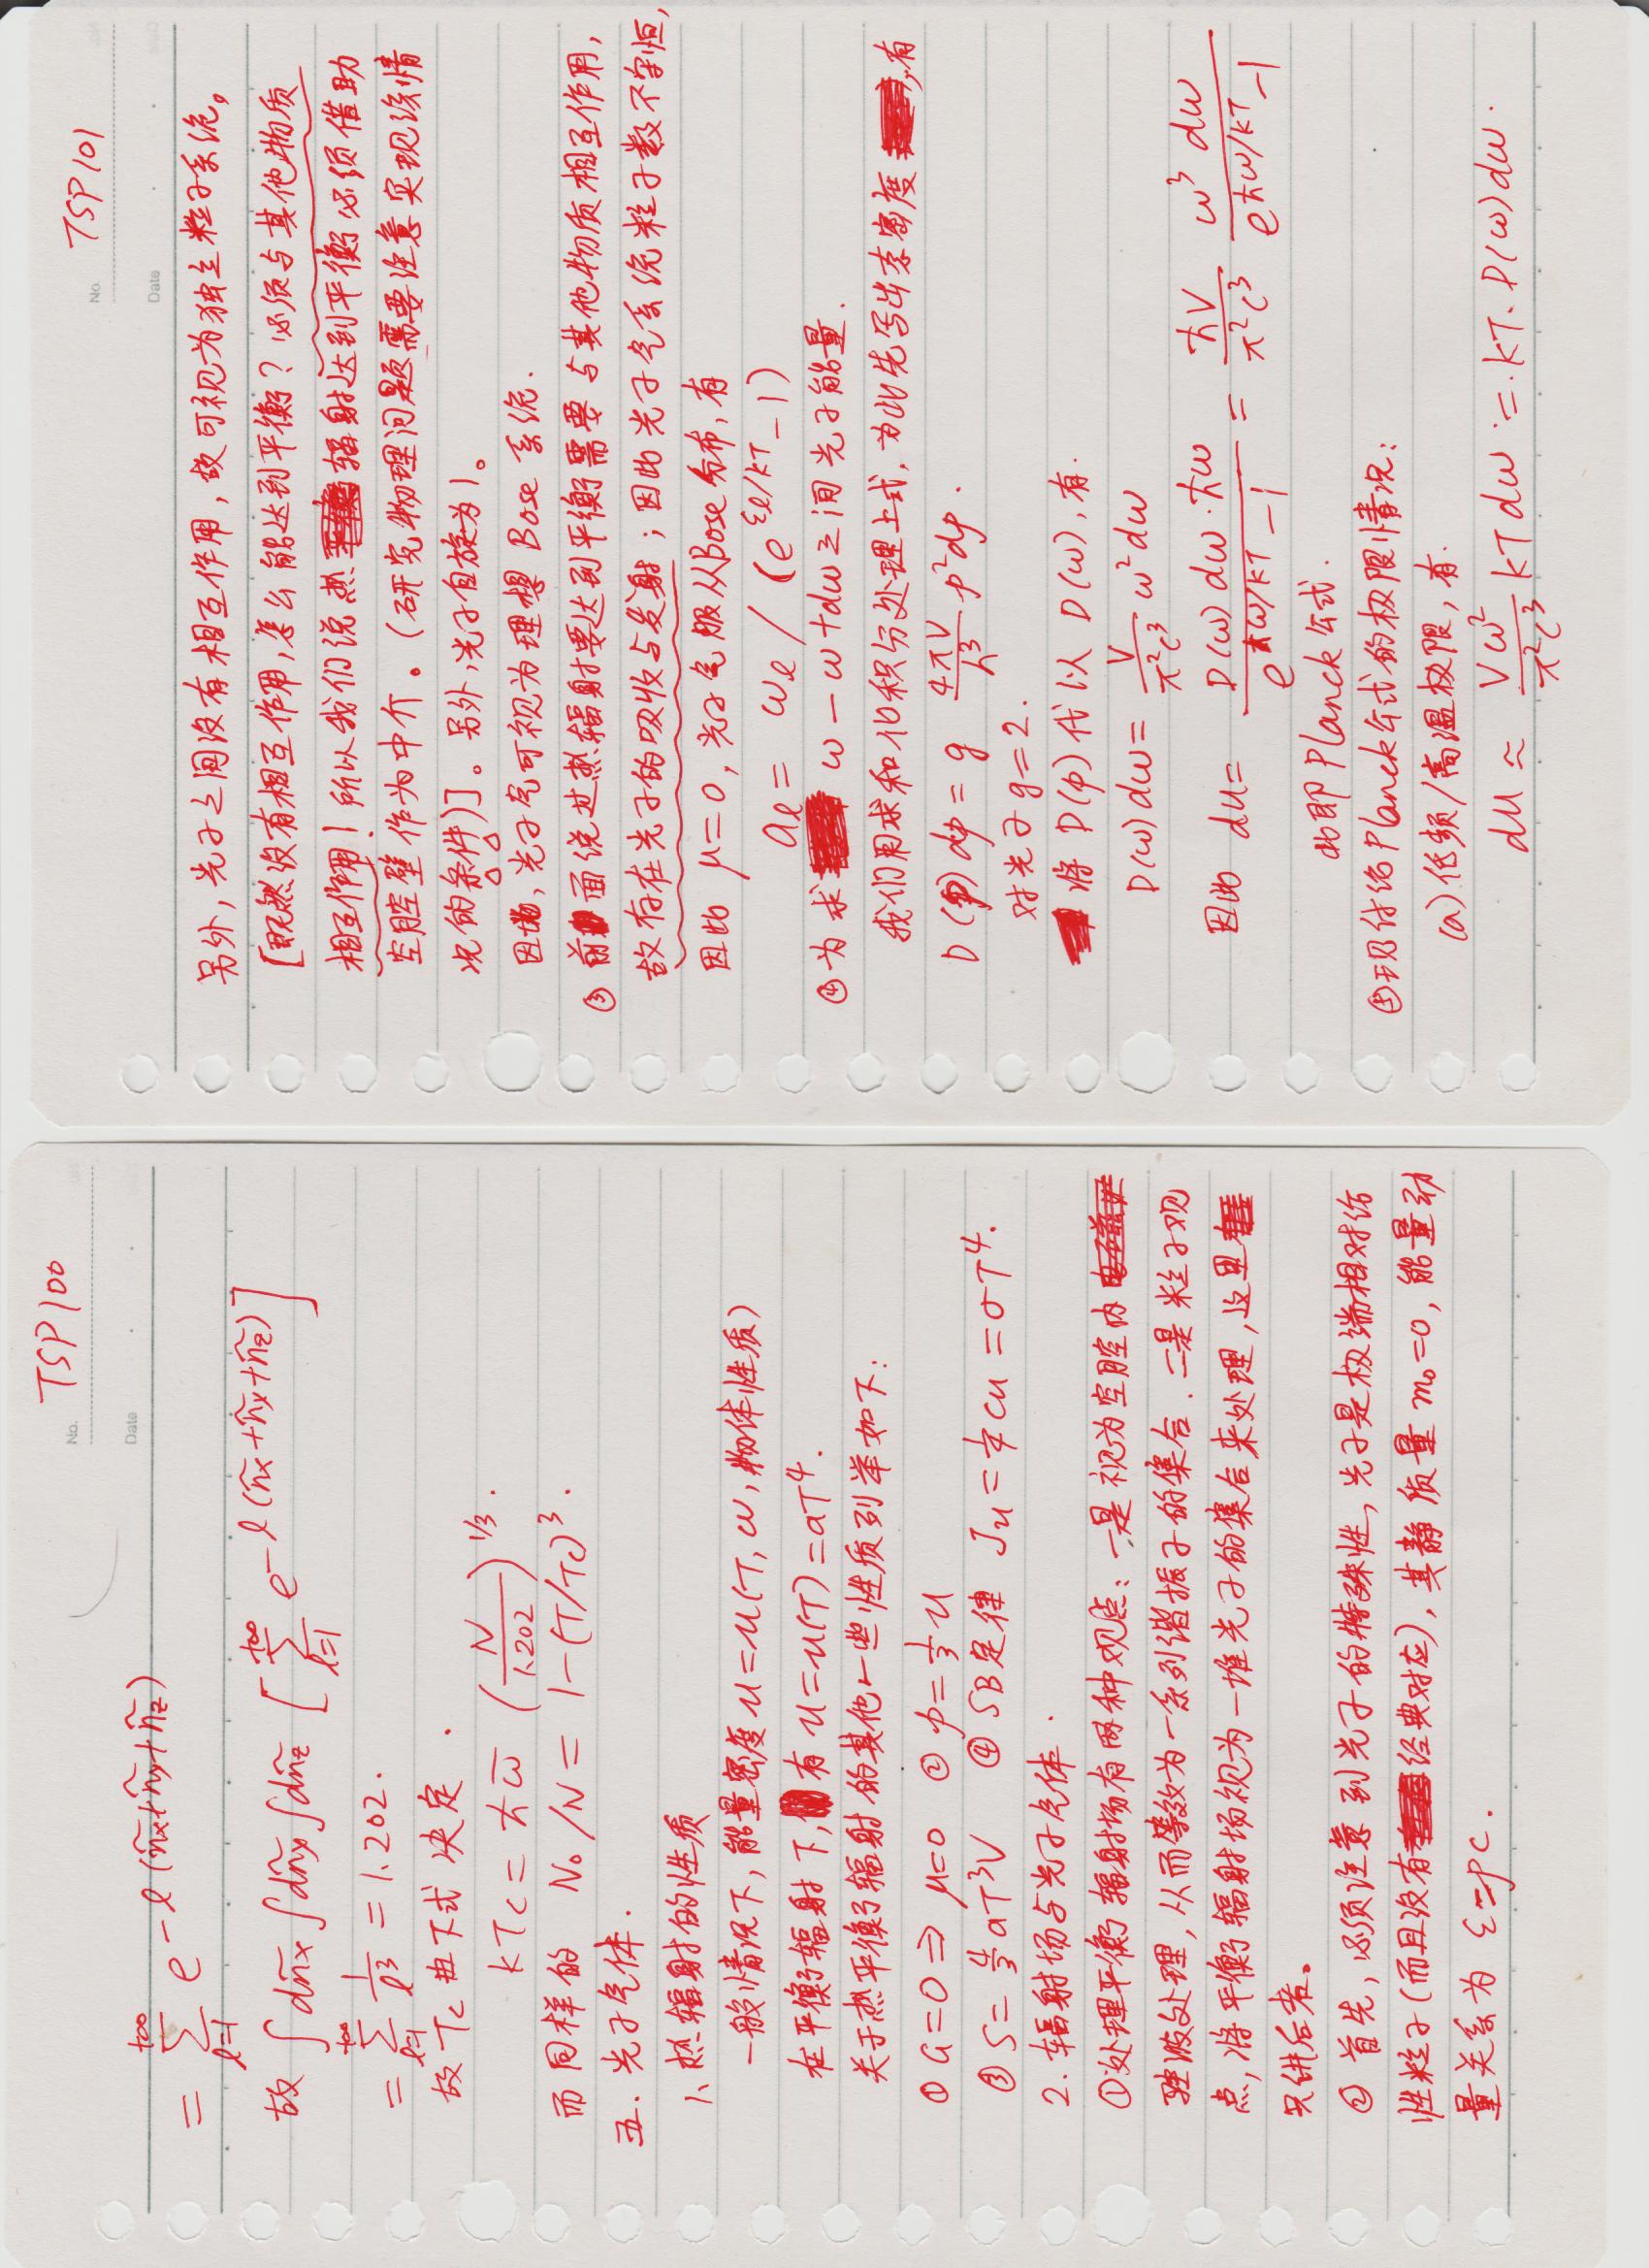 No. TSP100
Date
= ∑_{l=1}^{+∞} e^{-l(ñx+ñy+ñz)}
故 ∫dñx ∫dñy ∫dñz [∑_{l=1}^{+∞} e^{-l(ñx+ñy+ñz)}]
= ∑_{l=1}^{+∞} 1/l³ = 1.202.
故Tc由下式决定.
kTc = ħω̄ (N/1.202)^{1/3}.
而同样的 N₀/N = 1-(T/Tc)³.
五. 光子气体.
1. 热辐射的性质
一般情况下, 能量密度 u=u(T, ω, 物体性质)
在平衡辐射下, 有 u=u(T)=aT⁴.
关于热平衡辐射的其他一些性质列举如下:
① G=0 ⇒ μ=0 ② p=1/3 u
③ S=4/3 aT³V ④ SB定律 Ju=1/4 cu=σT⁴.
2. 辐射场与光子气体.
①处理平衡辐射场有两种观点: 一是视为空腔内
驻波处理, 从而等效为一系列谐振子的集合. 二是粒子观
点, 将平衡辐射场视为一堆光子的集合来处理, 这里
只讲后者。
② 首先, 必须注意到光子的特殊性, 光子是极端相对论
性粒子(而且没有经典对应), 其静质量m₀=0, 能量动
量关系为 ε=pc.
No. TSP101
Date
另外, 光子之间没有相互作用, 故可视为独立粒子系统。
[既然没有相互作用, 怎么能达到平衡? 必须与其他物质
相互作用! 所以我们说热辐射达到平衡必须借助
空腔壁作为中介。(研究物理问题需要注意实现该情
况的条件)]。另外, 光子自旋为1。
因此, 光子气可视为理想 Bose 系统.
③ 前面说过热辐射要达到平衡需要与其他物质相互作用,
故存在光子的吸收与发射; 因此光子气系统粒子数不守恒,
因此 μ=0, 光子气服从Bose分布, 有
a_l = ω_l / (e^{ε_l/kT}-1)
④为求 ω-ω+dω之间光子能量.
我们用求和化积分处理上式, 为此先写出态密度, 有
D(p)dp = g 4πV/h³ p²dp.
对光子g=2.
将 D(p)代以 D(ω), 有.
D(ω)dω = V/π²c³ ω²dω
因此 du = D(ω)dω·ħω / (e^{ħω/kT}-1) = ħV/π²c³ ω³dω / (e^{ħω/kT}-1)
此即Planck公式.
⑤现讨论Planck公式的极限情况:
(a) 低频/高温极限, 有.
du ≈ Vω²/π²c³ kTdω = kT·D(ω)dω.